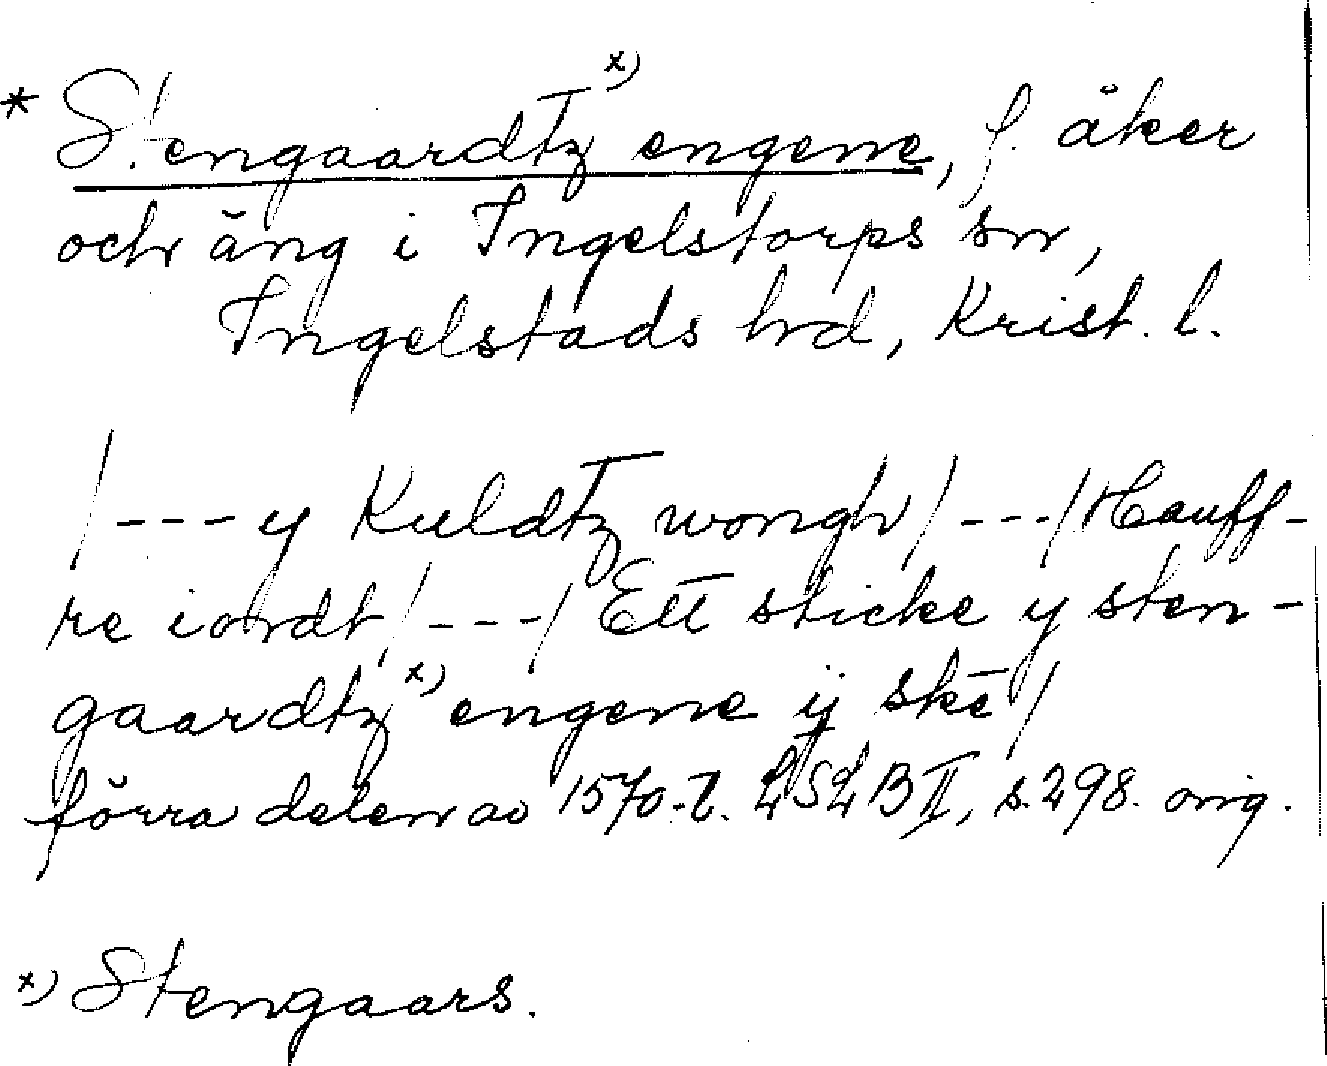 * Stengaardtz x) engene, f. åker
och äng i Ingelstorps sn,
Ingelstads hd, Krist. l.
/---y Kuldtz wongh/---/Hauff-
re iordt/---/Ett sticke y sten-
gaardtz x) engene ij skē/
förra delen av 1570-t. LSLB II, s. 298. orig.
x) Stengaars.